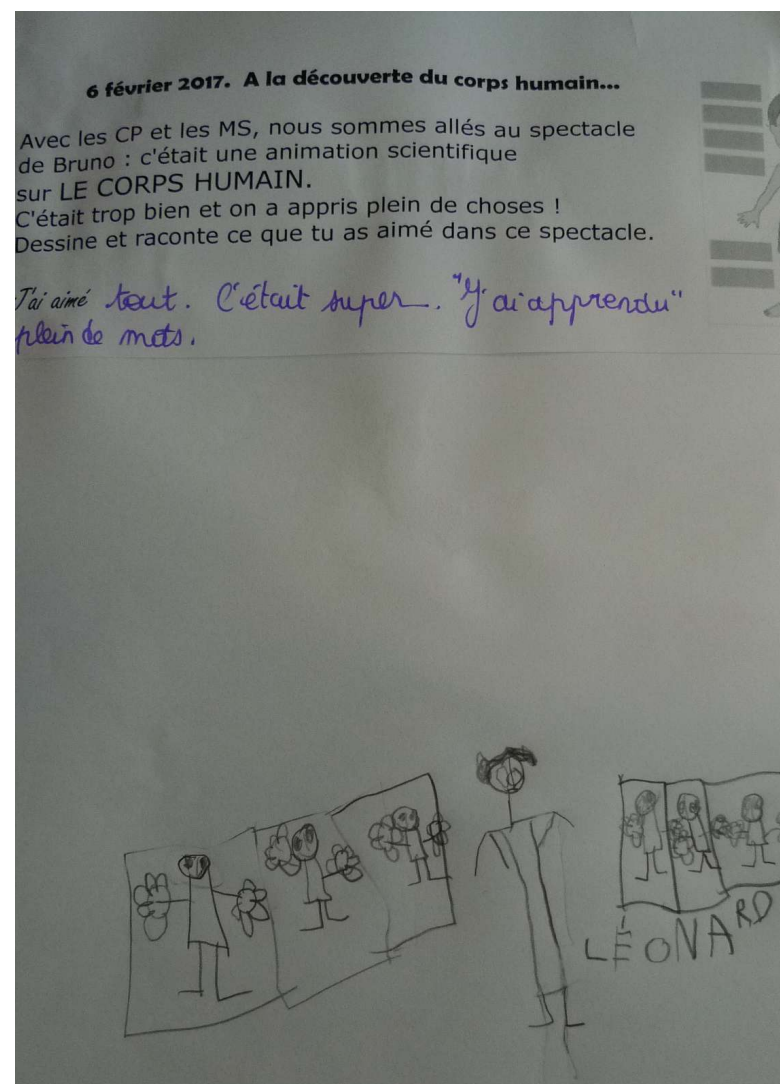 6 février 2017. A la découverte du corps humain...
Avec les CP et les MS, nous sommes allés au spectacle
de Bruno : c'était une animation scientifique
sur LE CORPS HUMAIN.
C'était trop bien et on a appris plein de choses !
Dessine et raconte ce que tu as aimé dans ce spectacle.
J'ai aimé tout. C'était super. "J'ai apprendu"
plein de mots.
LÉONARD